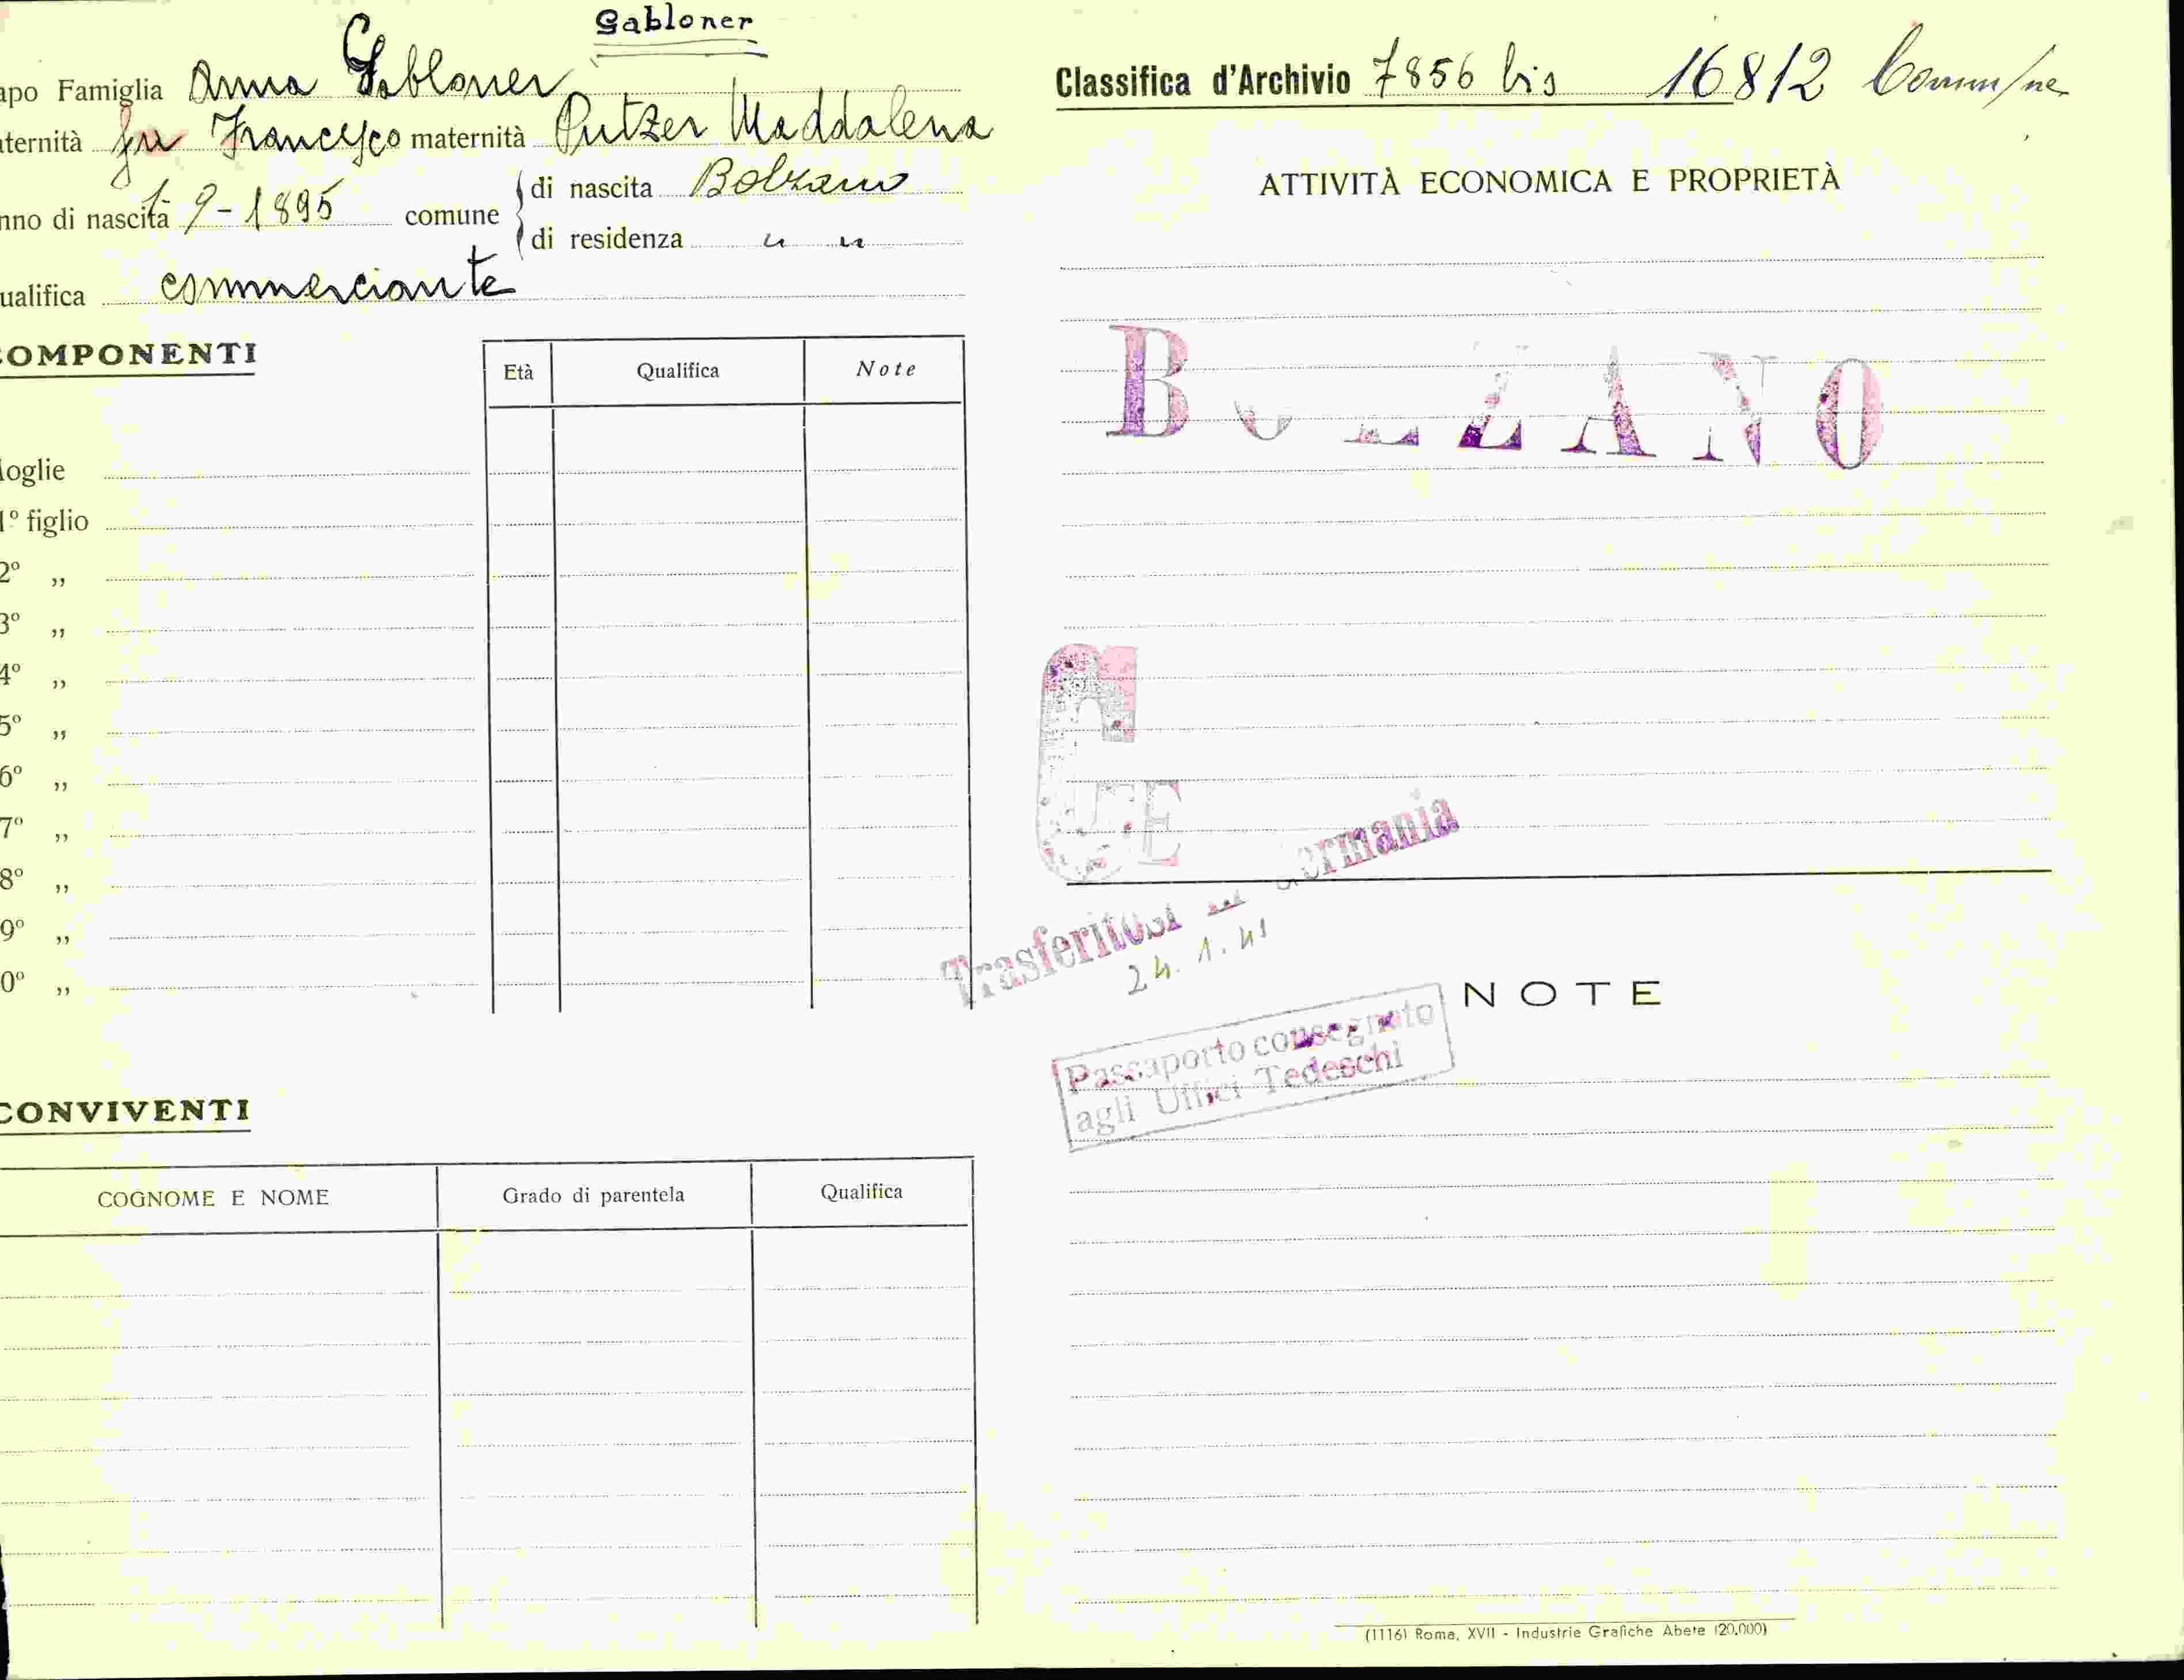 Gabloner
apo Famiglia Anna Gabloner
aternità fu Francesco maternità Putzer Maddalena
nno di nascita 1-9-1895 comune di nascita Bolzano
di residenza " "
ualifica commerciante
COMPONENTI
Età Qualifica Note
oglie
1° figlio
2° ,,
3° ,,
4° ,,
5° ,,
6° ,,
7° ,,
8° ,,
9° ,,
0° ,,
CONVIVENTI
COGNOME E NOME Grado di parentela Qualifica
Classifica d'Archivio 7856 bis 16812
ATTIVITÀ ECONOMICA E PROPRIETÀ
BOLZANO
Trasferitosi in Germania
24.1.41
NOTE
Passaporto consegnato
agli Uffici Tedeschi
(1116) Roma, XVII - Industrie Grafiche Abete (20.000)